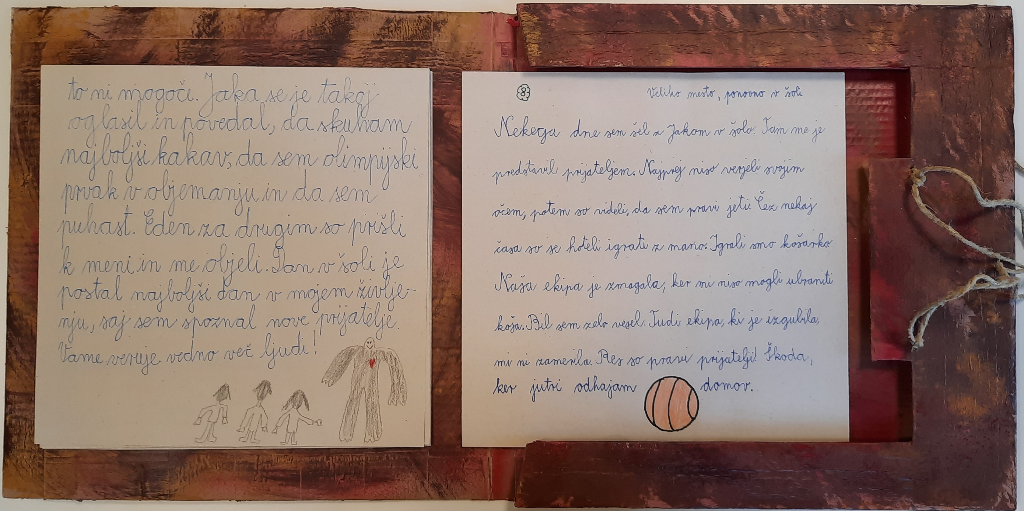 to ni mogoči. Jaka se je takoj
oglasil in povedal, da skuham
najboljši kakav, da sem olimpijski
prvak v objemanju in da sem
puhast. Eden za drugim so prišli
k meni in me objeli. Dan v šoli je
postal najboljši dan v mojem življe-
nju, saj sem spoznal nove prijatelje.
Vame veruje vedno več ljudi!
8
Veliko mesto, ponovno v šoli
Nekega dne sem šel z Jakom v šolo. Tam me je
predstavil prijateljem. Najprej niso verjeli svojim
očem, potem so videli, da sem pravi jeti. Čez nekaj
časa so se hoteli igrati z mano. Igrali smo košarko.
Naša ekipa je zmagala, ker mi niso mogli ubraniti
koša. Bil sem zelo vesel. Tudi ekipa, ki je izgubila,
mi ni zamerila. Res so pravi prijatelji! Škoda,
ker jutri odhajam domov.